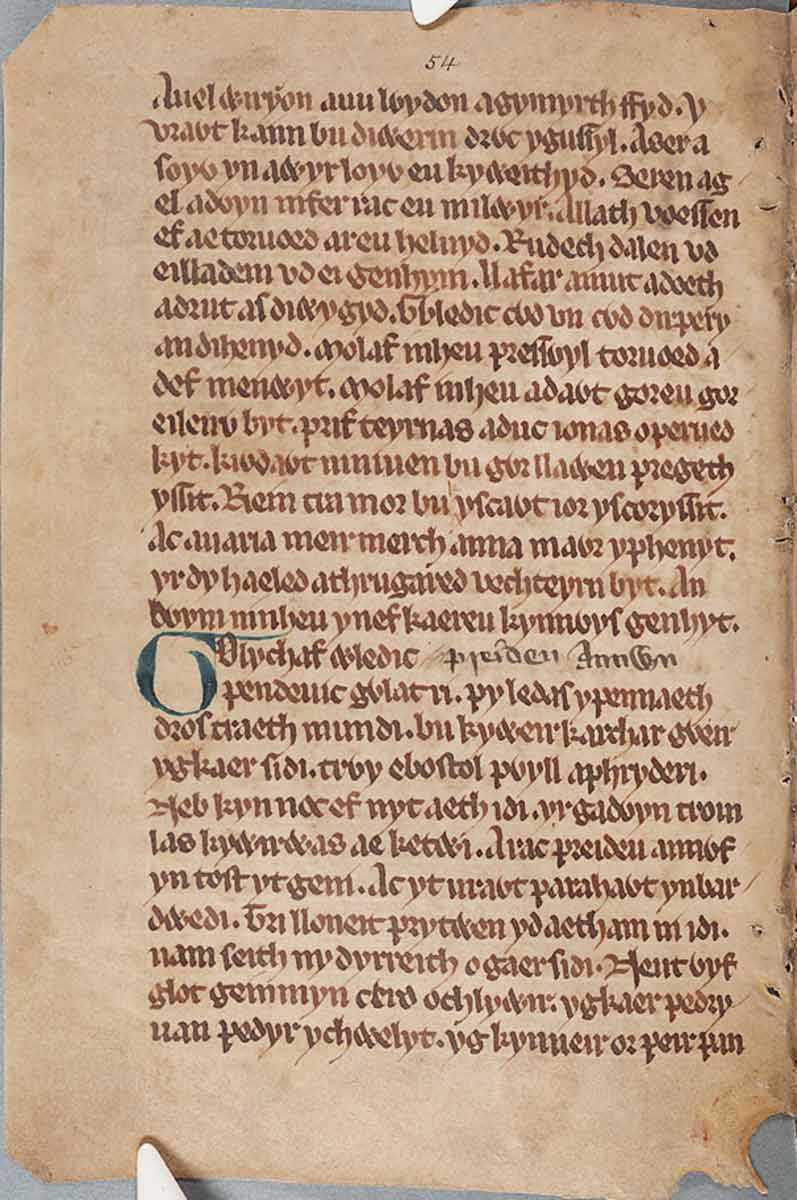 Auel ỽiryon auu lỽydon agymyrth ffyd. y
vraỽt kann bu diwerin drỽc ygussyl. Aser a
soyỽ yn awyr loyỽ eu kyweithyd. Seren ag
el adoyn inferrac eu milwyr. Allath voessen
ef ae toruoed areu helnyd. Rudech dalen vd
eilladem vd ei genhym. llafar amut adoeth
adrut as diwygyd. Gỽledic cỽd vn cỽd dirpery
an dihenyd. Molaf inheu pressỽyl toruoed a
def menwyt. Molaf inheu adaỽt goreu gor
eileuỽ byt. prif teyrnas aduc ionas o perued
kyt. kiỽdaỽt niniuen bu gỽr llawen pregeth
yssit. Riein tra mor bu yscaỽt ior yscoryssit.
Ac auaria meir merch anna maỽr y phenyt.
yr dy haeled athrugared vechteyrn byt. An
bỽym ninheu ynef kaereu kynnỽys genhyt.
Golychaf wledic preiden Annwn
pendeuic gỽlat ri. py ledas y pennaeth
dros traeth mundi. bu kyweir karchar gỽeir
ygkaer sidi. trỽy ebostol pỽyll aphryderi.
Neb kyn noc ef nyt aeth idi. yr gadỽyn trom
las kywirwas ae ketwi. Arac preideu annỽf
yn tost yt geni. Ac yt uraỽt parahaỽt ynbar
dwedi. Tri lloneit prytwen yd aetham ni idi.
nam seith ny dyrreith o gaer sidi. Neut ỽyf
glot geinmyn cerd ochlywir. ygkaer pedry
uan pedyr ychwelyt. yg kynneir or peir pan